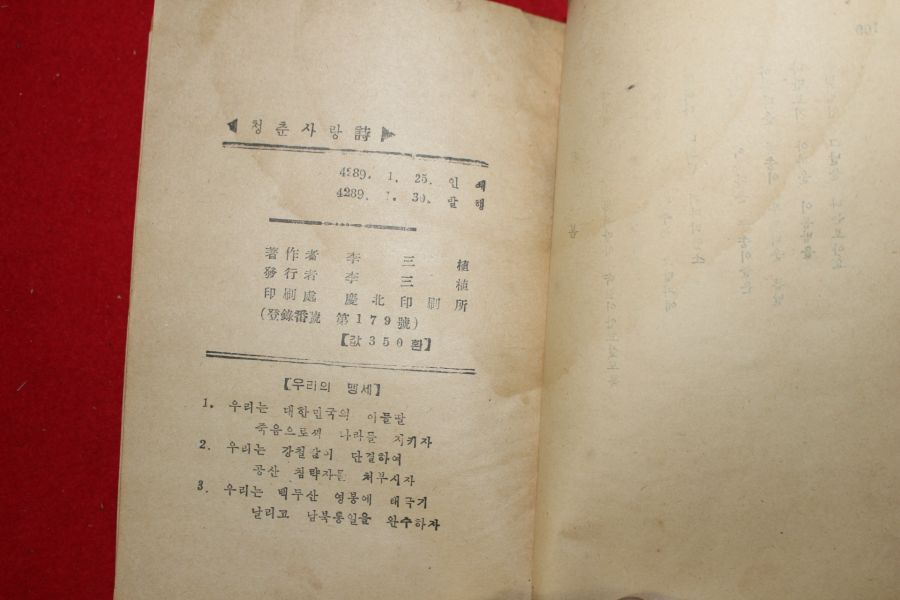 ◀ 청춘사랑詩 ▶
4289. 1. 25. 인쇄
4289. 1. 30. 발행
著作者 李三植
發行者 李三植
印刷處 慶北印刷所
(登錄番號 第179號)
【값350환】
【우리의 맹세】
1. 우리는 대한민국의 아들딸
죽음으로써 나라를 지키자
2. 우리는 강철같이 단결하여
공산 침략자를 처부시자
3. 우리는 백두산 영봉에 태극기
날리고 남북통일을 완수하자